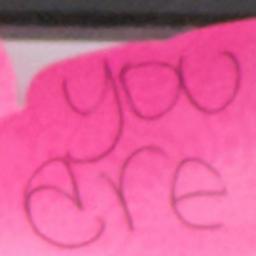 you
are